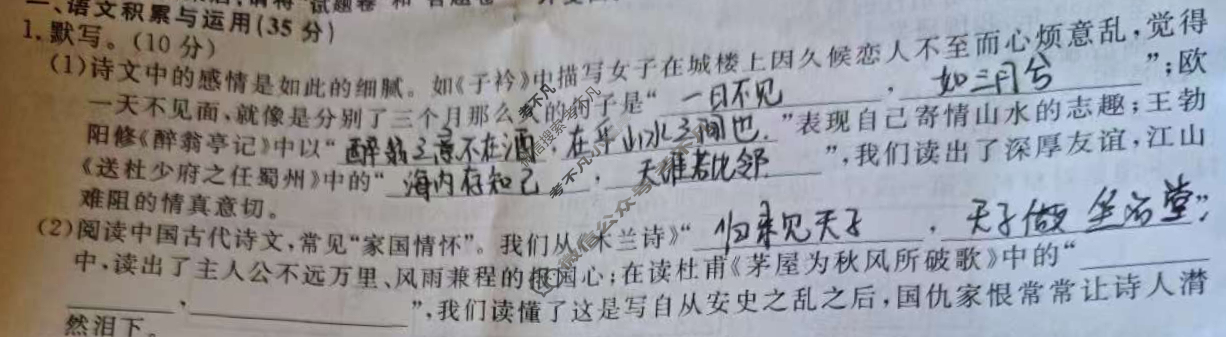 一、语文积累与运用(35分)
1.默写。(10分)
(1)诗文中的感情是如此的细腻。如《子衿》中描写女子在城楼上因久候恋人不至而心烦意乱,觉得
一天不见面,就像是分别了三个月那么久的句子是“一日不见,如三月兮”;欧
阳修《醉翁亭记》中以“醉翁之意不在酒,在乎山水之间也。”表现自己寄情山水的志趣;王勃
《送杜少府之任蜀州》中的“海内存知己,天涯若比邻”,我们读出了深厚友谊,江山
难阻的情真意切。
(2)阅读中国古代诗文,常见“家国情怀”。我们从《木兰诗》“归来见天子,天子做 坐名堂”
中,读出了主人公不远万里、风雨兼程的报国心;在读杜甫《茅屋为秋风所破歌》中的“
,”,我们读懂了这是写自从安史之乱之后,国仇家恨常常让诗人潸
然泪下。